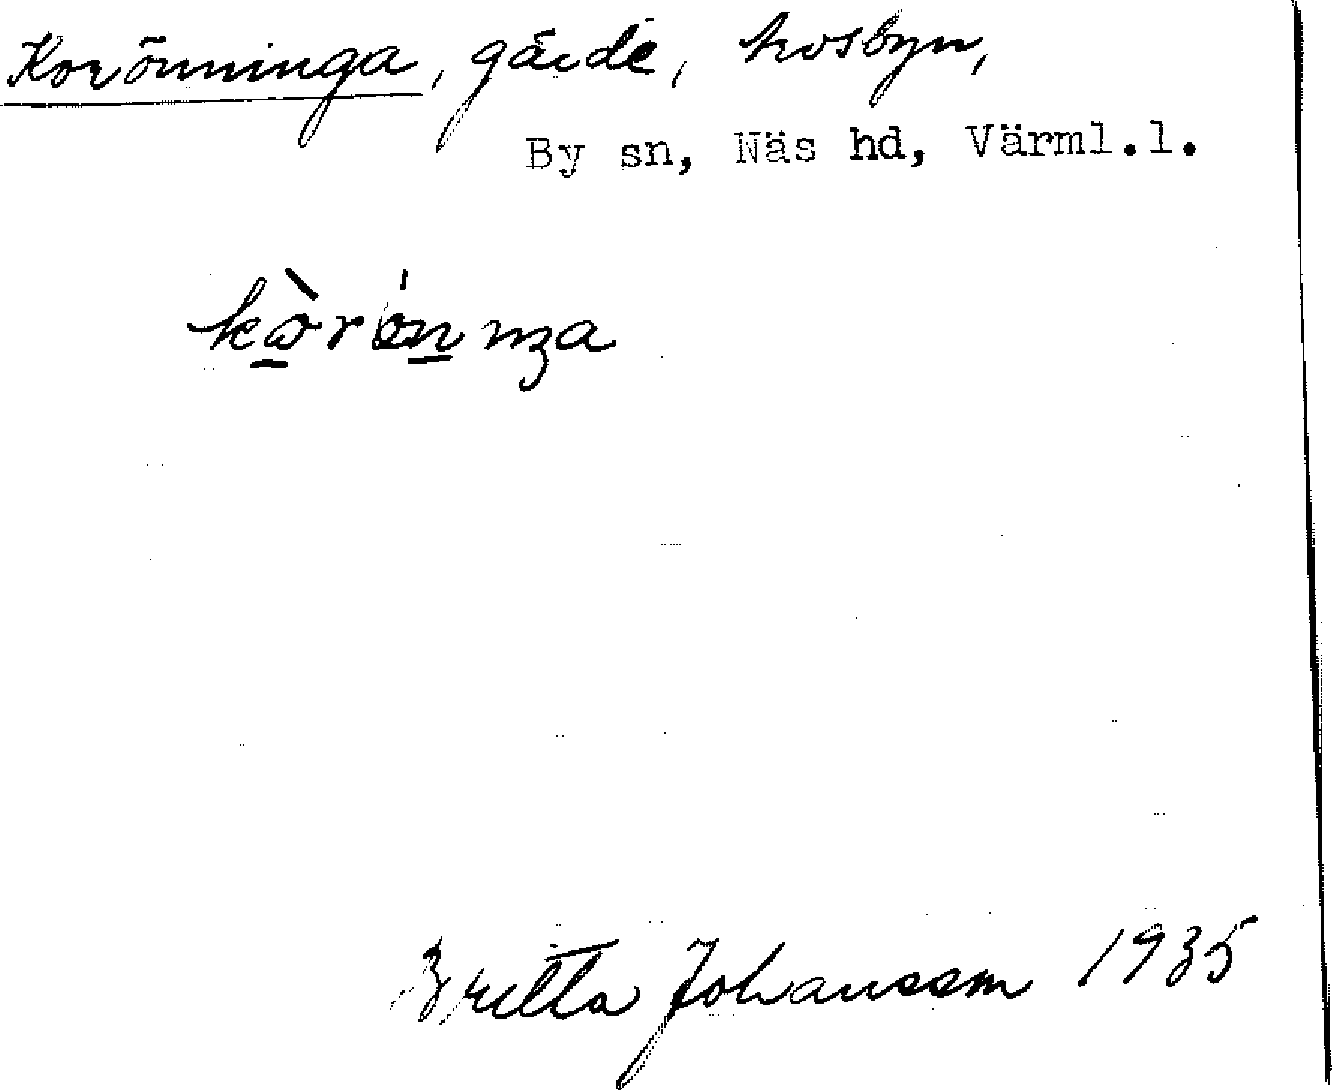 Korönninga, gärde, hosbyn,
By sn, Näs hd, Värml.l.
Britta Johansson 1935